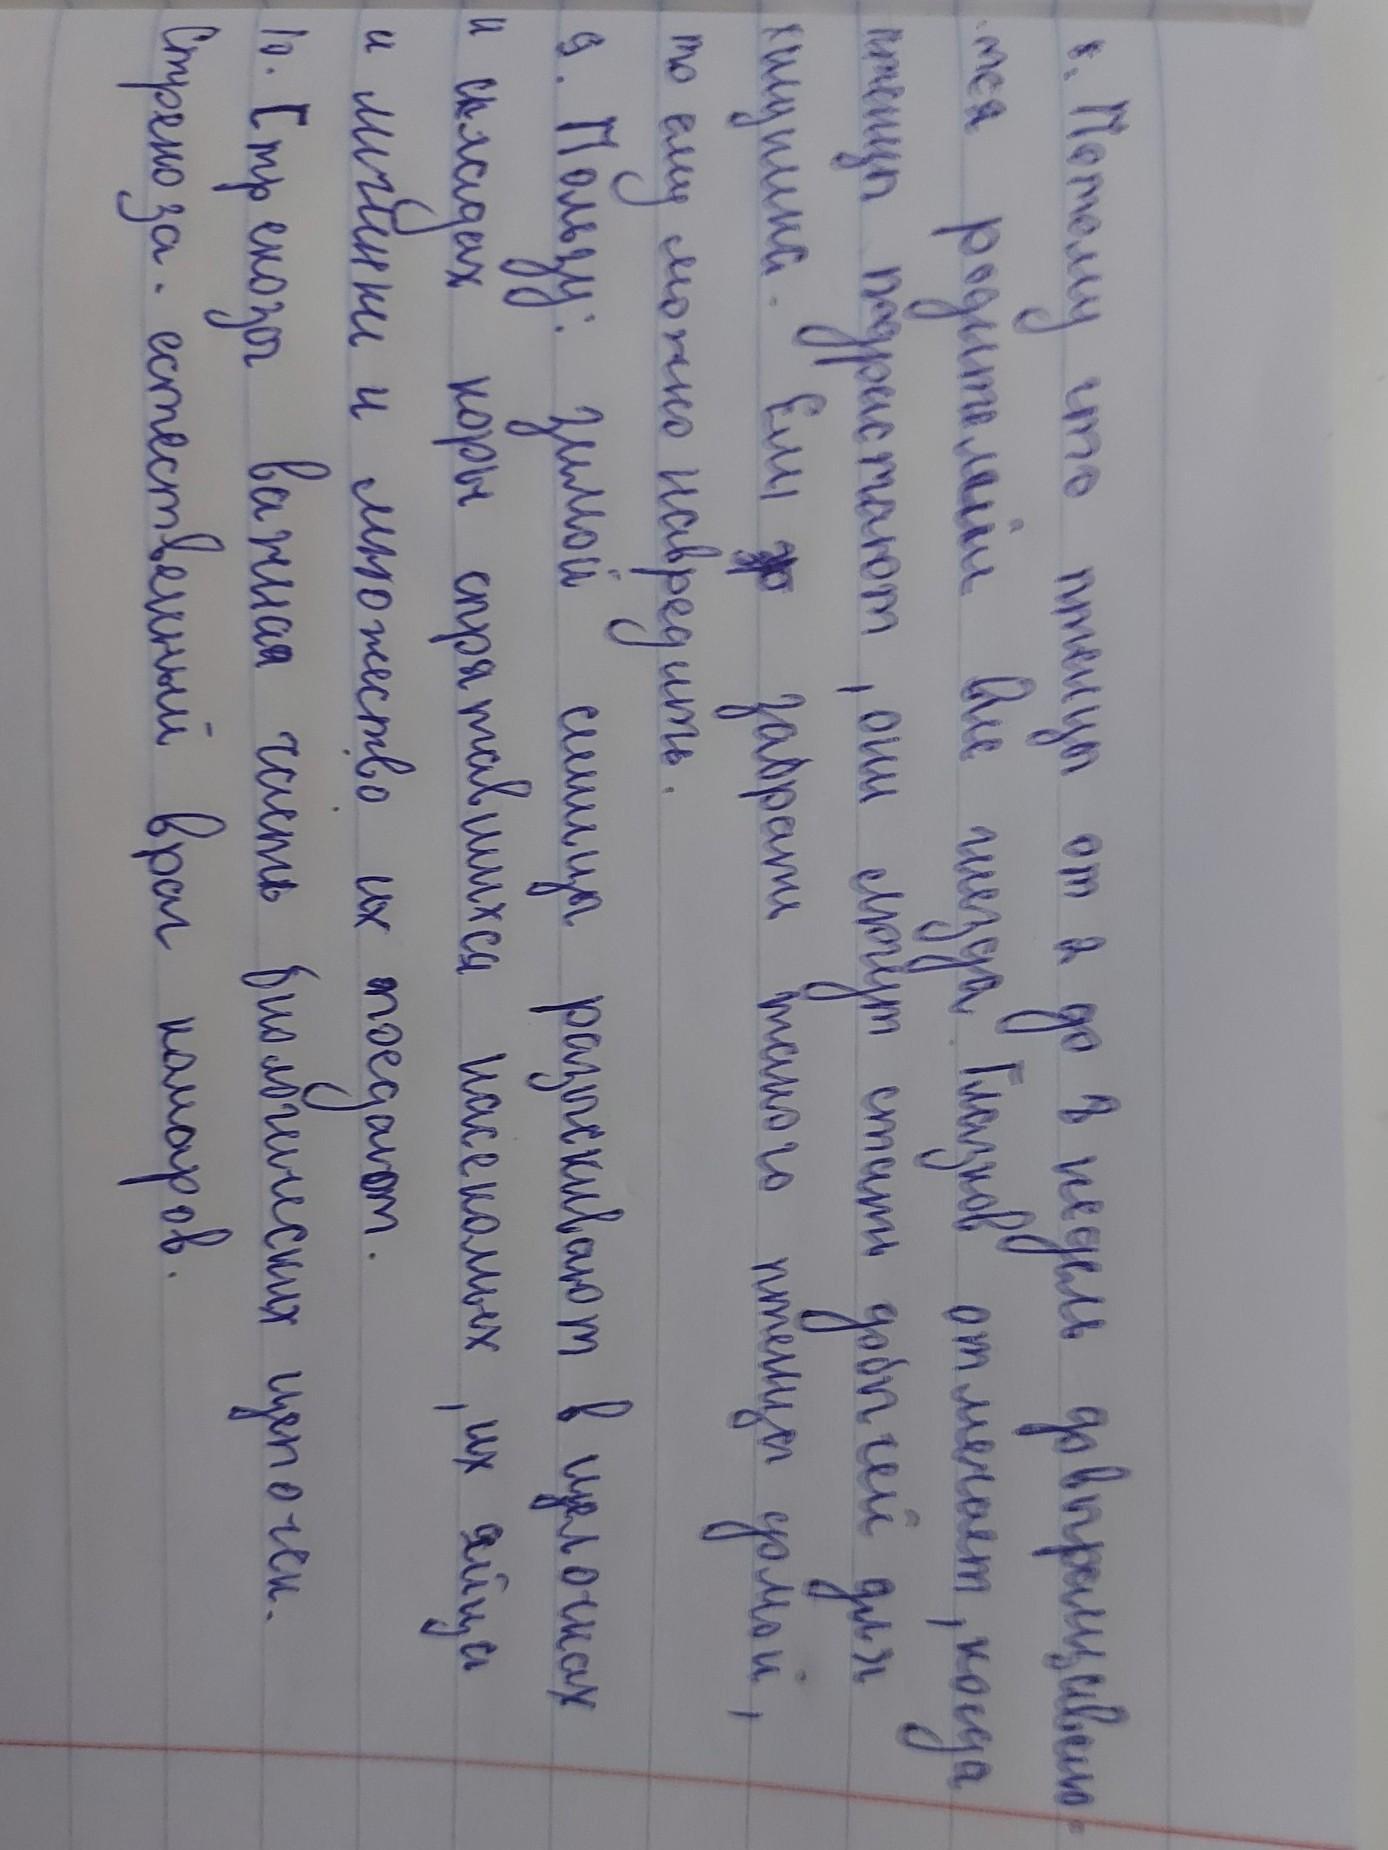 8. Потому что птенцы от 2 до 3 недель довыращиваю-
тся родителями вне гнезда. Глазков отмечает, когда
птенцы подрастают, они могут стать добычей для
хищника. Если забрать такого птенца домой,
то ему можно навредить.
9. Пользу: Зимой синицы разыскивают в щелочках
и складах коры спрятавшихся насекомых, их яйца
и личинки и множество их поедают.
10. Стрекозы важная часть биологических цепочек.
Стрекоза. естественный враг комаров.